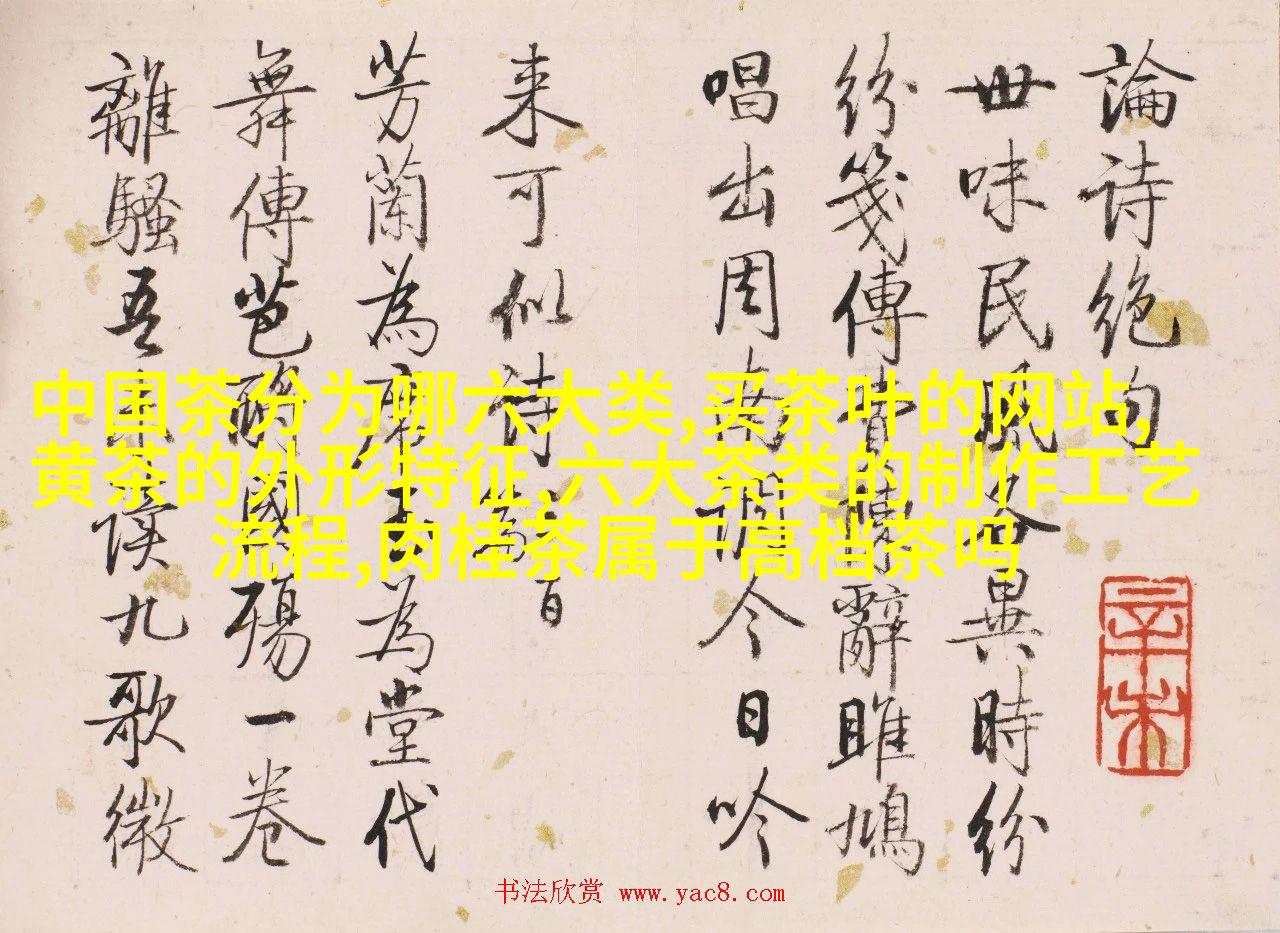 論詩絕句
世味民風各異時紛
紛箋傳費陳辭雎鳩
唱出周南調今日吟
来可似詩
芳蘭為席玉為堂代
舞傳芭酹國殤一卷
離騷吾九歌微
辛未
中国茶分为哪六大类,买茶叶的网站,
黄茶的外形特征,六大茶类的制作工艺
流程,肉桂茶属于高档茶吗
书法欣赏 www.yac8.com